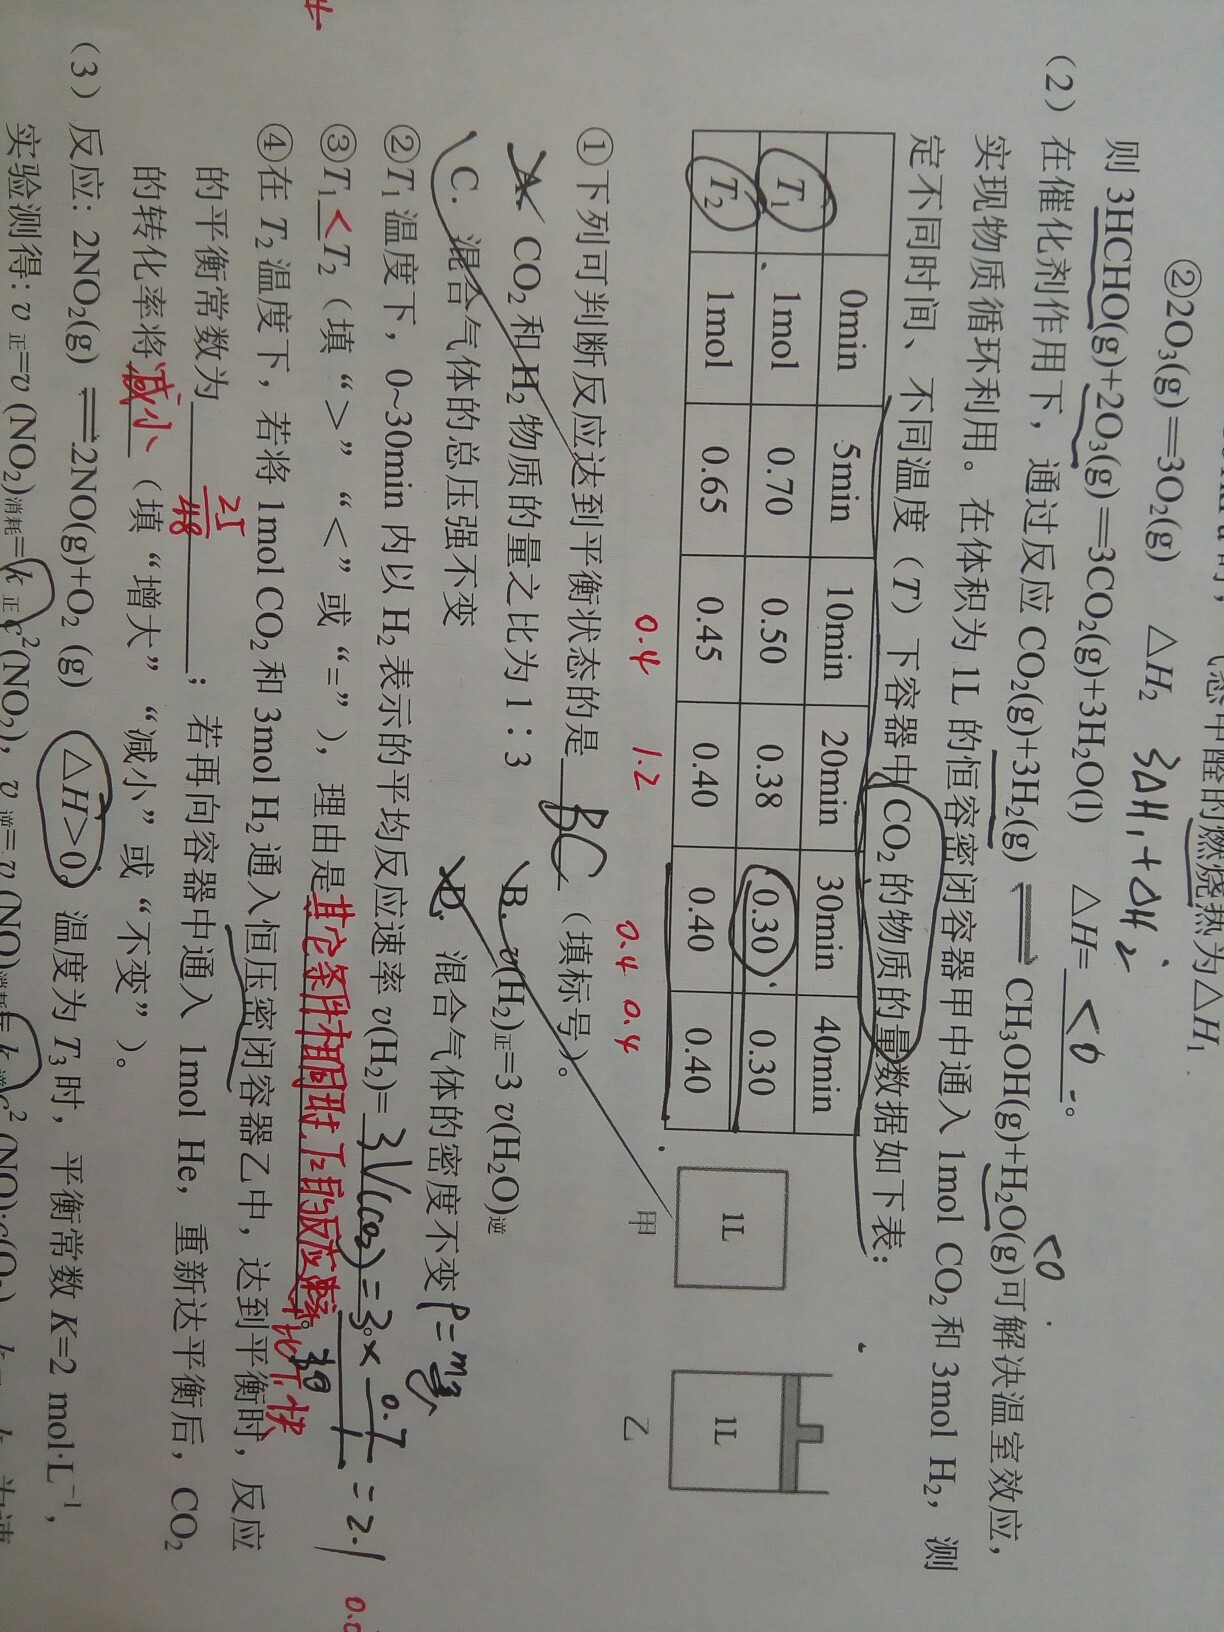 ②2O₃(g)═3O₂(g) △H₂ 3△H₁+△H₂
燃烧热为△H₁
则 3HCHO(g)+2O₃(g)═3CO₂(g)+3H₂O(l) △H=<0。
<0
（2）在催化剂作用下，通过反应 CO₂(g)+3H₂(g)⇌CH₃OH(g)+H₂O(g)可解决温室效应，
实现物质循环利用。在体积为 1L 的恒容密闭容器甲中通入 1mol CO₂和 3mol H₂，测
定不同时间、不同温度（T）下容器中 CO₂的物质的量数据如下表：
0min 5min 10min 20min 30min 40min
T₁ 1mol 0.70 0.50 0.38 0.30 0.30
T₂ 1mol 0.65 0.45 0.40 0.40 0.40
1L 1L
甲 乙
0.4 1.2 0.4 0.4
①下列可判断反应达到平衡状态的是 BC （填标号）。
A. CO₂和 H₂物质的量之比为 1：3 B. v(H₂)正=3 v(H₂O)逆
C. 混合气体的总压强不变 D. 混合气体的密度不变 ρ=
②T₁温度下，0~30min 内以 H₂表示的平均反应速率 v(H₂)=3V(CO₂)=3×0.7/1=2.1。
30
③T₁<T₂（填“>”“<”或“=”），理由是其它条件相同时,T₂的反应速率比T₁快。
④在 T₂温度下，若将 1mol CO₂和 3mol H₂通入恒压密闭容器乙中，达到平衡时，反应
的平衡常数为 25/48 ；若再向容器中通入 1mol He，重新达平衡后，CO₂
的转化率将减小（填“增大”“减小”或“不变”）。
（3）反应：2NO₂(g)⇌2NO(g)+O₂(g) △H>0。温度为 T₃时，平衡常数 K=2 mol·L⁻¹，
实验测得：v正=v(NO₂)消耗=k正c²(NO₂)，v逆=v(NO)消耗=k逆c²(NO)·c(O₂)